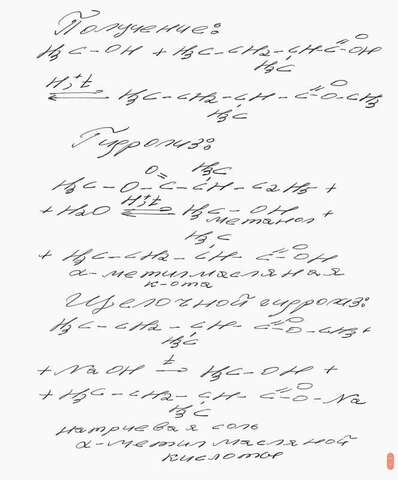 Получение:
H3C-OH + H3C-CH2-CH-C=O-OH
H3C
H+, t ⇌ H3C-CH2-CH-C=O-O-CH3
H3C
Гидролиз:
O= H3C
H3C-O-C-CH-C2H5 +
+ H2O ⇌ H+, t H3C-OH +
метанол
H3C
+ H3C-CH2-CH-C=O-OH
α-метилмасляная
к-ота
Щелочной гидролиз:
H3C-CH2-CH-C=O-O-CH3+
H3C
+ NaOH →t H3C-OH +
+ H3C-CH2-CH-C=O-O-Na
H3C
натриевая соль
α-метилмасляной
кислоты